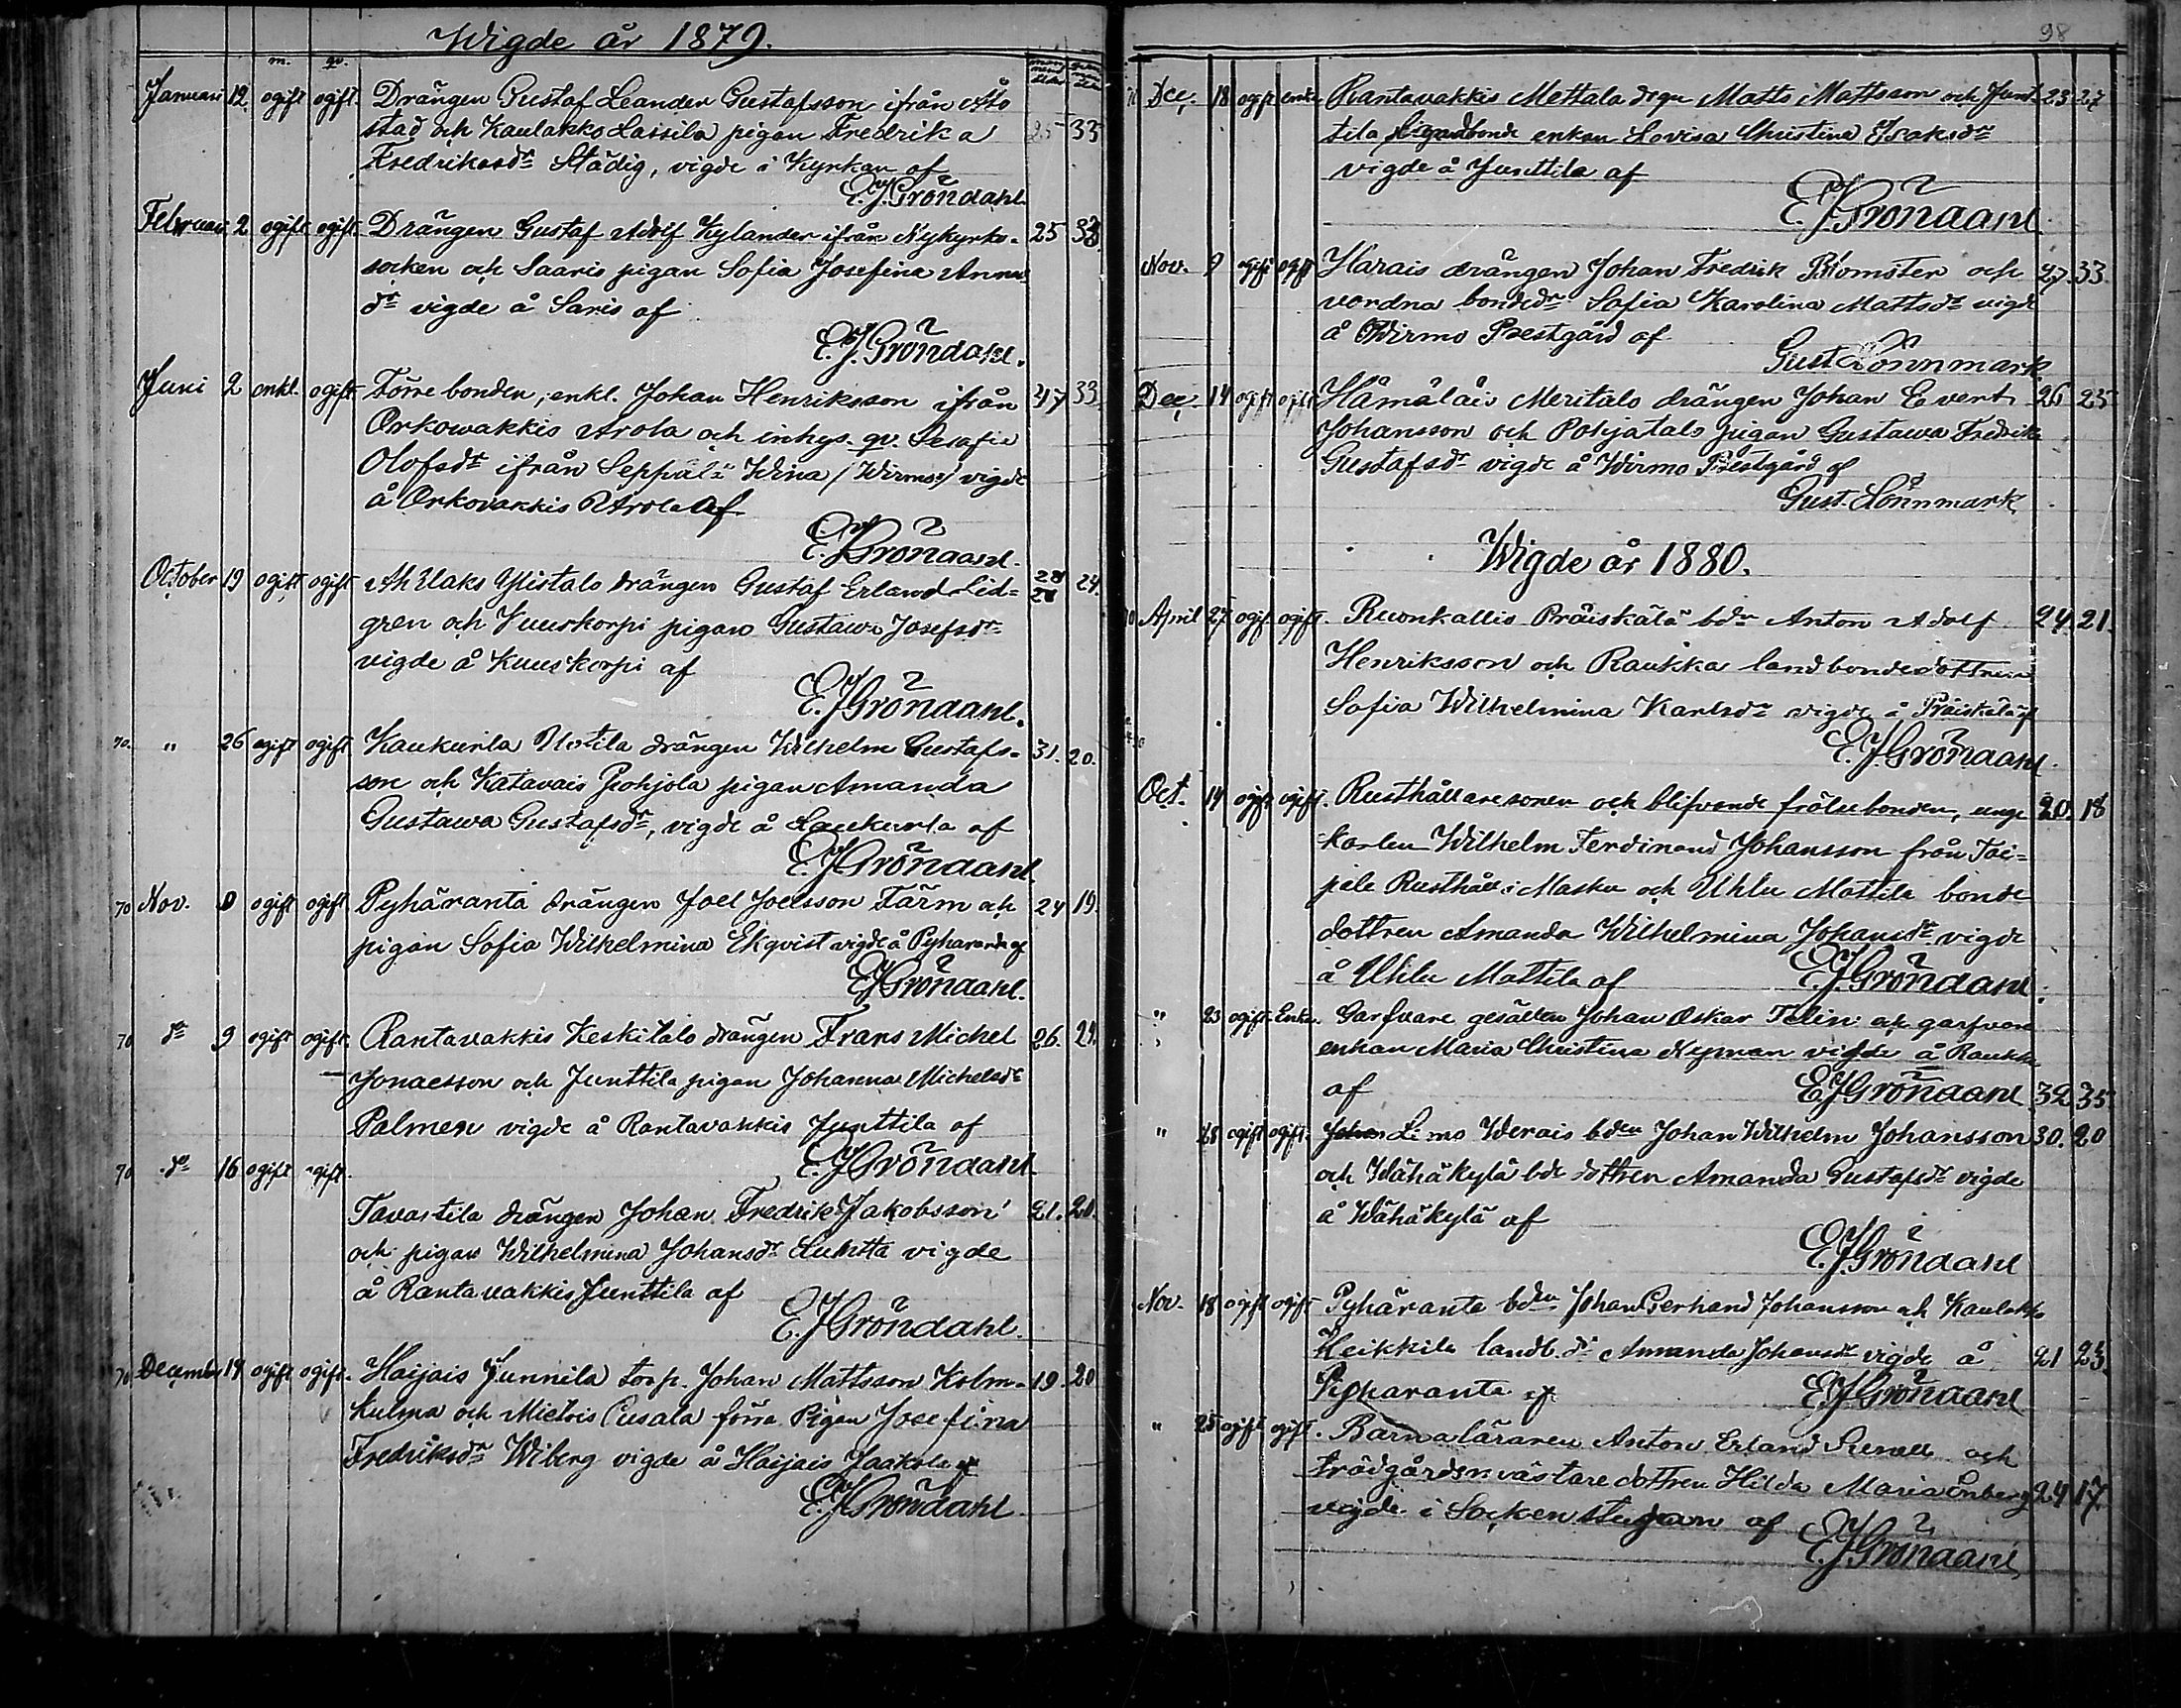 Wigde år 1879.
m. qv.
Januari 12. ogift ogift. Drängen Gustaf Leander Gustafsson ifrån Åbo
stad och Kaulakko Lassila pigan Fredrika 25 33
Fredriksdr Städig, vigde i Kyrkan af
E. J. Gröndahl.
Februari 2 ogift ogift. Drängen Gustaf Adolf Kylander ifrån Nykyrko- 25 33
socken och Saaris pigan Sofia Josefina Anna
dr vigde å Saris af
E. J. Gröndahl.
Juni 2 enkl. ogift Förre bonden, enkl. Johan Henriksson ifrån 47 33
Orkowakkis Arola och inhys. qv. Serafia
Olofsdr ifrån Seppälä Wina (Wirmo) vigde
å Orkovakkis Arola af
E. J. Gröndahl.
October 19 ogift ogift Ahtlaks Ylistalo drängen Gustaf Erland Lid- 28 24.
gren och Kuuskorpi pigan Gustawa Josefsdr
vigde å Kuuskorpi af
E. J. Gröndahl.
70. " 26 ogift ogift Kaukurla Uotila drängen Wilhelm Gustafs- 31. 20.
son och Katavais Pohjola pigan Amanda
Gustawa Gustafsdr, vigde å Laukurla af
E. J. Gröndahl.
70 Nov. ogift ogift Pyhäranta drängen Joel Joelsson Färm och 24 19.
pigan Sofia Wilhelmina Ekqvist vigde å Pyharanda af
E. J. Gröndahl.
70 do 9 ogift ogift. Rantavakkis Keskitalo drängen Frans Michel 26. 24.
Jonaesson och Junttila pigan Johanna Michelsdr
Palmen vigde å Rantavakkis Junttila af
E. J. Gröndahl
70 do 16 ogift ogift.
Tavastila drängen Johan Fredrik Jakobsson 21. 20.
och pigan Wilhelmina Johansdr Luhtta vigde
å Rantavakkis Junttila af
E. J. Gröndahl.
70 December 14 ogift ogift. Haijais Junnila torp. Johan Mattsson Kolm- 19. 20
kulma och Mietois Cusala förra Pigan Josefina
Fredriksdr Wiberg vigde å Haijais Jaakola af
E. J. Gröndahl
98
Dec. 18 ogift enka Rantavakkis Mettala drgn Matts Mattsson och Junt- 23 27
tila bonde enkan Lovisa Christina Isaksdr
vigde å Junttila af
E. J. Gröndahl
Nov. 9 ogift ogift Harais drängen Johan Fredrik Blomster och 27. 33.
vordna bondedr Sofia Karolina Mattsdr vigde
å Wirmo Prestgård af
Gust. Lönnmark.
Dec. 14 ogift ogift Hämäläis Meritalo drängen Johan Evert 26 25
Johansson och Pohjatalo pigan Gustawa Fredrika
Gustafsdr vigde å Wirmo Prestgård af
Gust. Lönnmark
Wigde år 1880.
April 27 ogift ogift. Ruonkallis Präiskälä bdn Anton Adolf 24. 21.
Henriksson och Raukka landbondedottren
Sofia Wilhelmina Karlsdr vigde å Präiskälä af
E. J. Gröndahl.
Oct. 14 ogift ogift. Rusthållaresonen och blifvande frälsebonden, unge 20. 18
karlen Wilhelm Ferdinand Johansson från Tai-
pale Rusthåll i Masku och Uhlu Mattila bonde
dottren Amanda Wilhelmina Johansdr vigde
å Uhlu Mattila af E. J. Gröndahl.
" 23 ogift. Enka. Garfvare gesällen Johan Oskar Telin och garfvare
enkan Maria Christina Nyman vigde å Raukka
af E. J. Gröndahl 32 35
" 28 ogift ogift. Lemo Werais bden Johan Wilhelm Johansson 30. 20
och Wähäkylä bde dottren Amanda Gustafsdr vigde
å Wähäkylä af
E. J. Gröndahl
Nov. 18 ogift ogift Pyhäranta bden Johan Gerhard Johansson och Kaulakko
Heikkila landb. dr Amanda Johansdr vigde å 21 23.
Pyharanta af E. J. Gröndahl
" 25 ogift ogift. Barnaläraren Anton Erland och
trädgårdsmästare dottren Hilda Maria Enberg 24 17
vigde i Sockenstugan af
E. J. Gröndahl